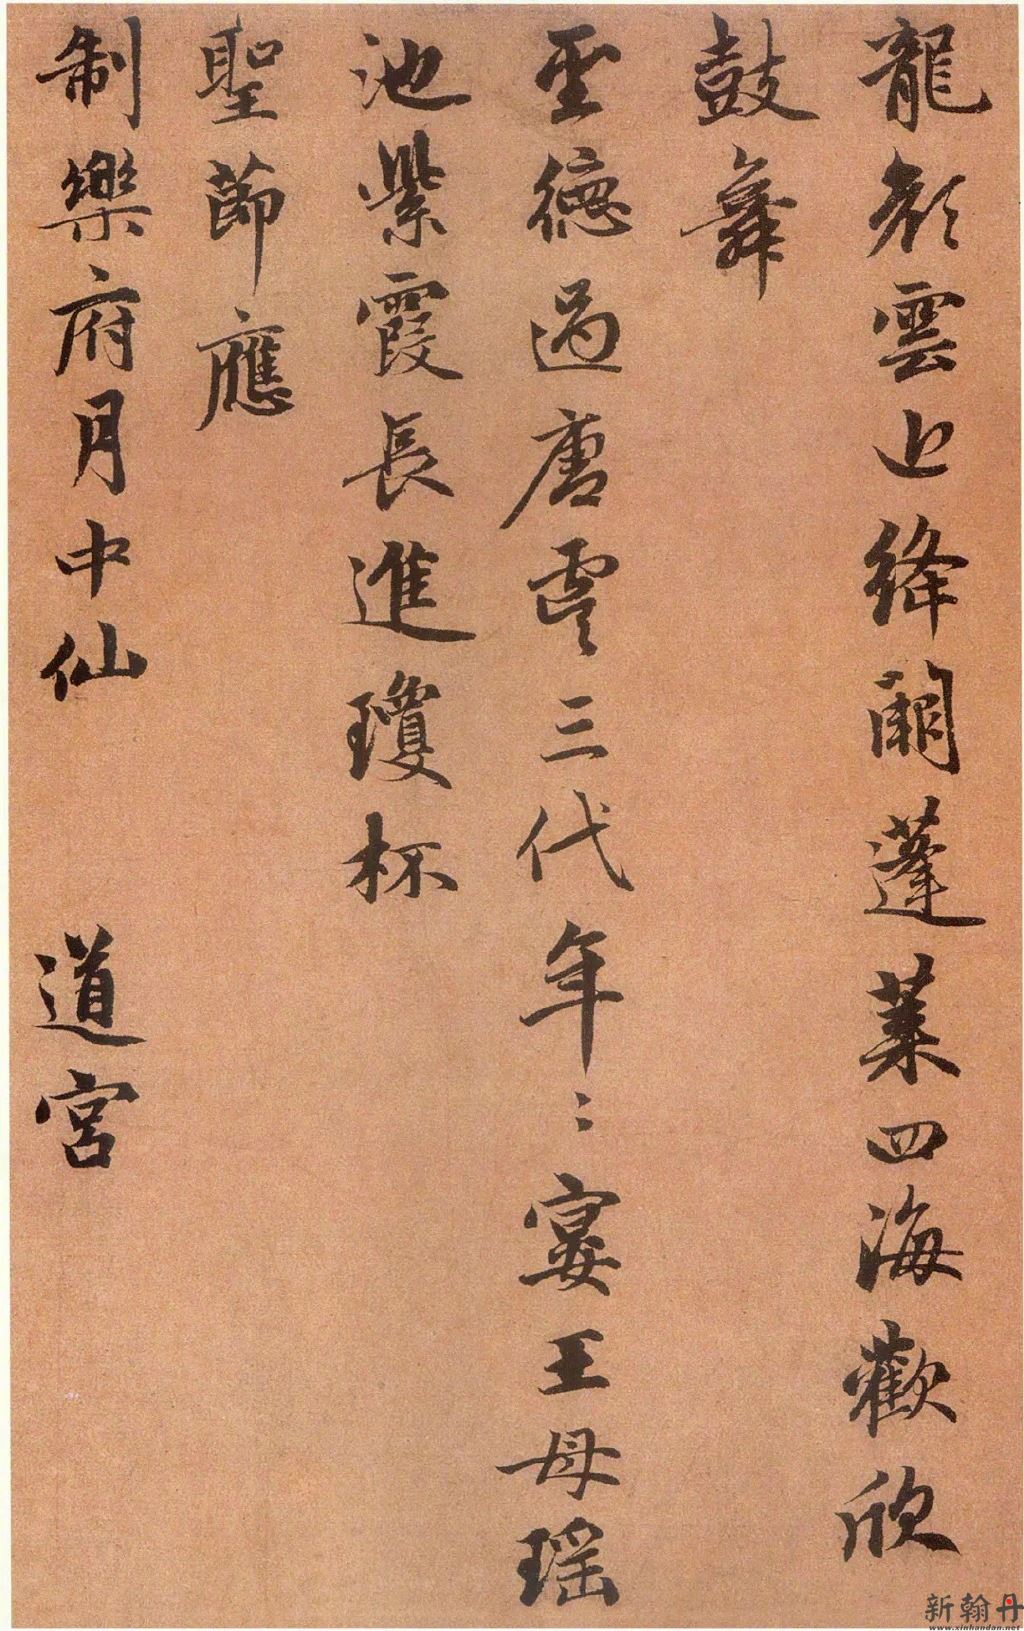 龍顏雲上絳闕蓬萊四海歡欣
鼓舞
聖德過唐虞三代年〻宴王母瑤
池紫霞長進瓊杯
聖節應
制樂府月中仙 道宮
新翰丹
www.xinhandan.net